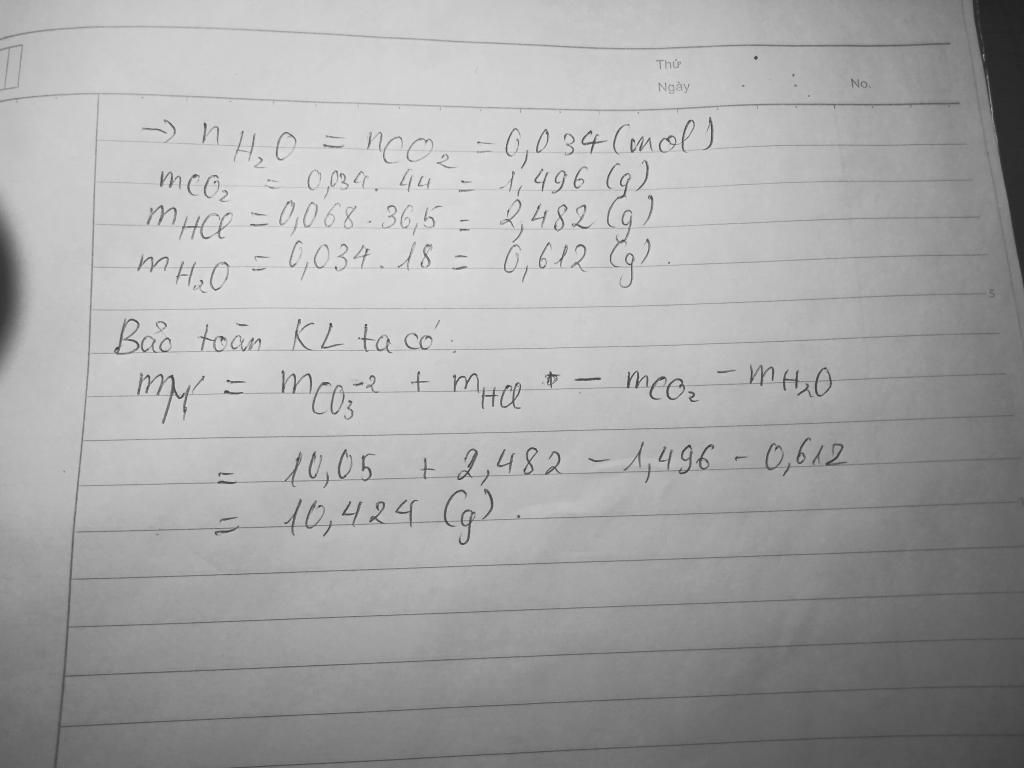 Thứ
Ngày
No.
→ nH₂O = nCO₂ = 0,034 (mol)
mCO₂ = 0,034. 44 = 1,496 (g)
mHCl = 0,068 . 36,5 = 2,482 (g)
mH₂O = 0,034 . 18 = 0,612 (g).
5
Bảo toàn KL ta có:
mM' = mCO₃⁻² + mHCl - mCO₂ - mH₂O
= 10,05 + 2,482 - 1,496 - 0,612
= 10,424 (g).